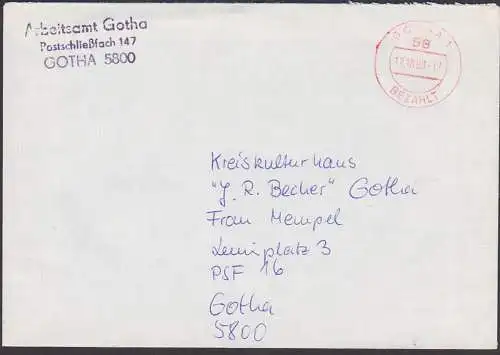 Arbeitsamt Gotha
Postschließfach 147
GOTHA 5800
GOTHA 1
58
BEZAHLT
Kreiskulturhaus
"J. R. Becher" Gotha
Frau Hempel
Leninplatz 3
PSF 16
Gotha
5800